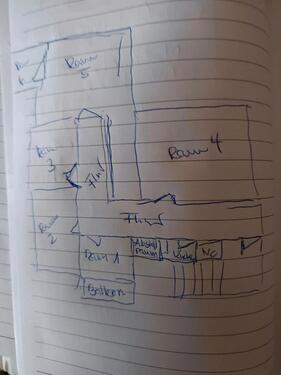 Raum
5
Raum 4
Raum
3
Flur
Flur
Raum
2
Raum 1
Abstell
raum
WC
Balkon